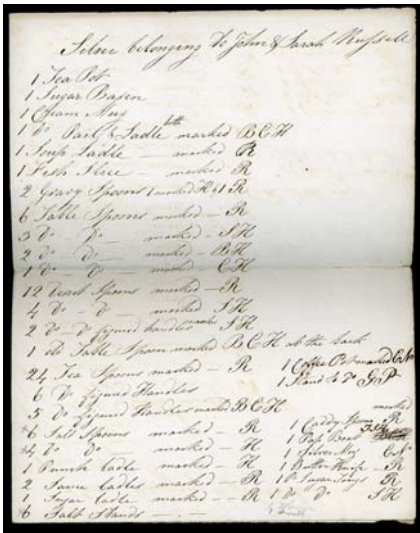 Silver belonging to John & Sarah Russell
1 Tea Pot
1 Sugar Basen
1 Cream Mug
1 Do Pail & Ladle both marked B C H
1 Soup Ladle — marked R
1 Fish Slice — marked R
2 Gravy Spoons 1 marked H & 1 R
6 Table Spoons marked — R
3 Do — Do — marked — S H
2 Do — Do — marked — B H
1 Do — Do — marked — C H
12 Desert Spoons marked — R
4 Do — Do — marked S H
2 Do Do figured handles marked S H
1 old Table Spoon marked B C H at the back
24 Tea Spoons marked — R
6 Do figured Handles
5 Do figured Handles marked B C H
*6 Salt Spoons marked — R
*4 Do Do marked — H
1 Punch Ladle marked — H
2 Sauce Ladles marked — R
1 Sugar Ladle marked — R
*6 Salt Stands — . —
1 Coffee Pot marked C N
1 Stand to Do
marked
1 Caddy Spoon R
1 Pap Boat
1 Silver Mug C N
1 Butter Knife — R
1 Pr Sugar Tongs R
1 Do Do S H